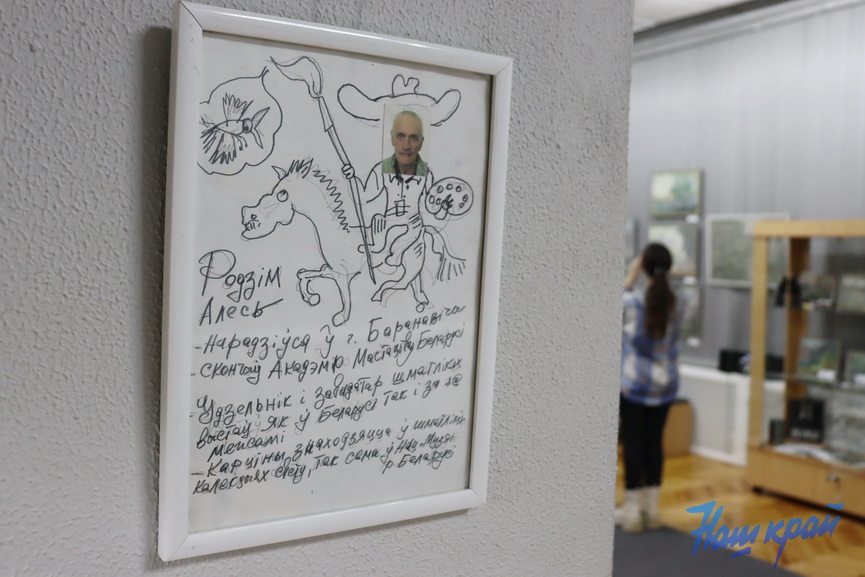 Родзім
Алесь
- Нарадзіўся ў г. Баранавічы
скончыў Акадэмію Мастацтву Беларусі
- Удзельнік і завадатар шматлікіх
выстаў як ў Беларусі так і за яе
межамі
- Карціны знаходзяцца ў шматлікіх
калекцыях свету, так сама ў Нац. Музеі
р. Беларусі
Наш край